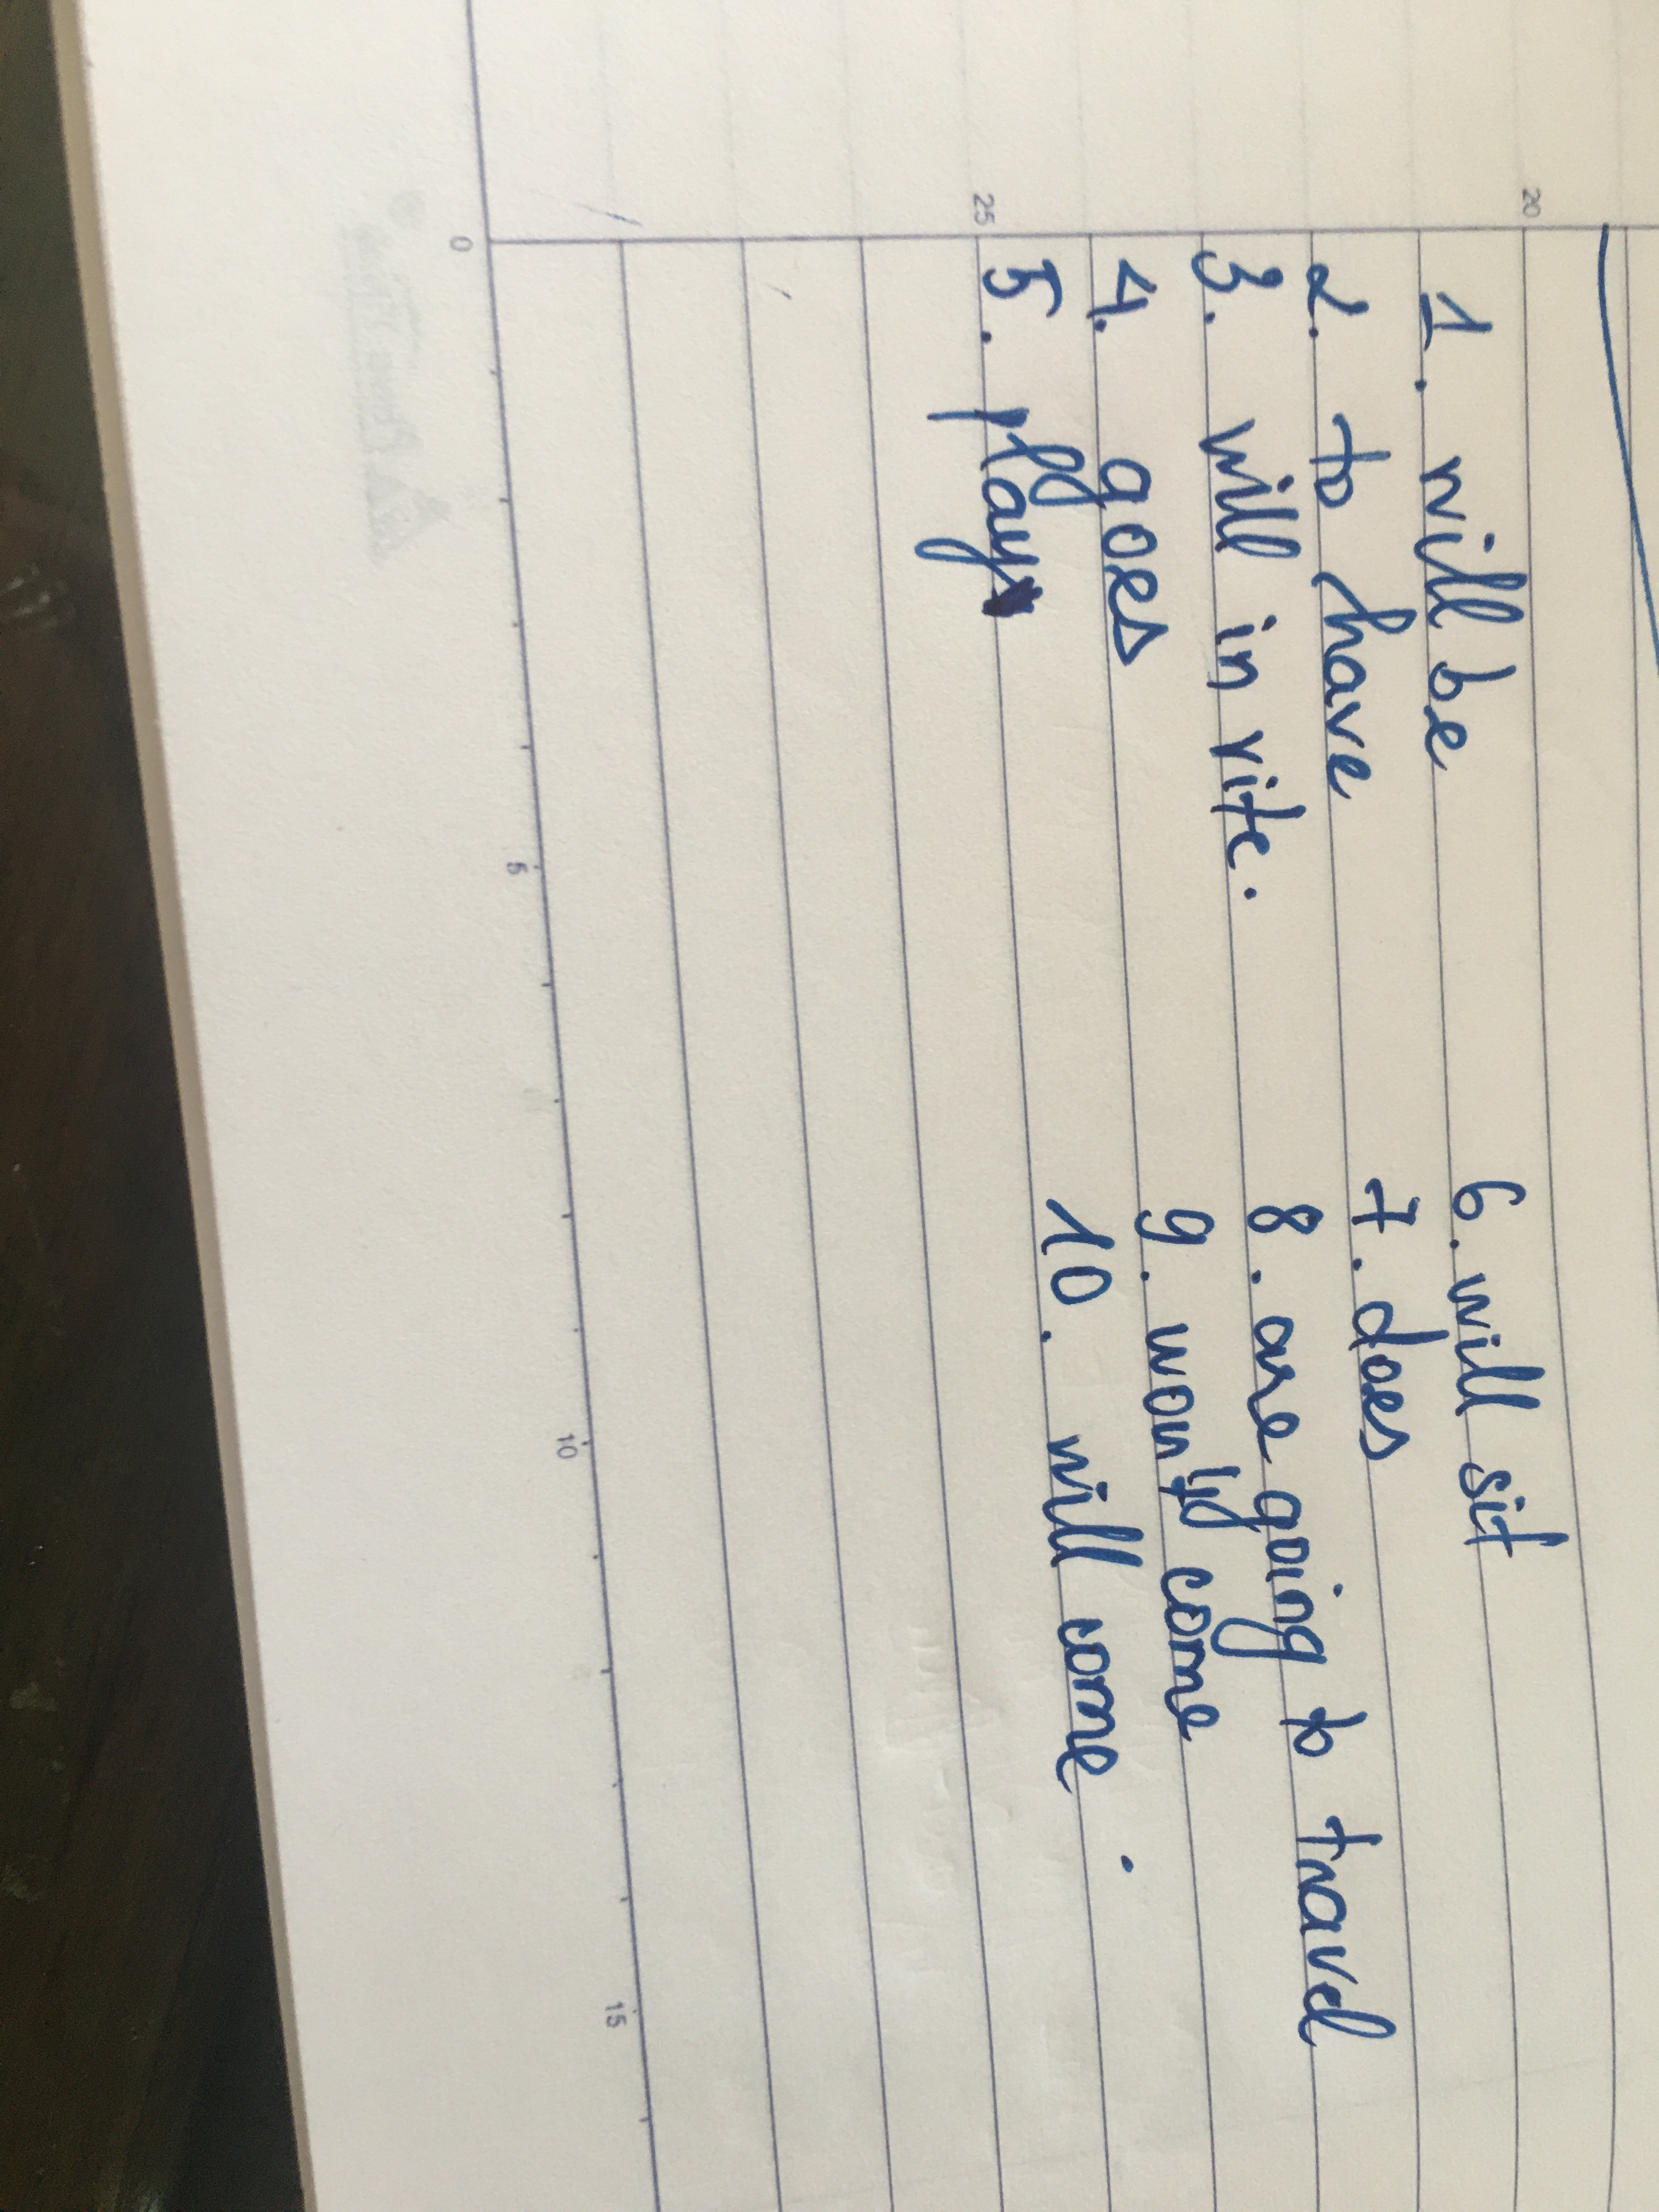 1. will be
2. to have
3. will in rite.
4. goes
5. play
6. will sit
7. does
8. are going to travel
9. come
10. will come.
20
25
0
5
10
15